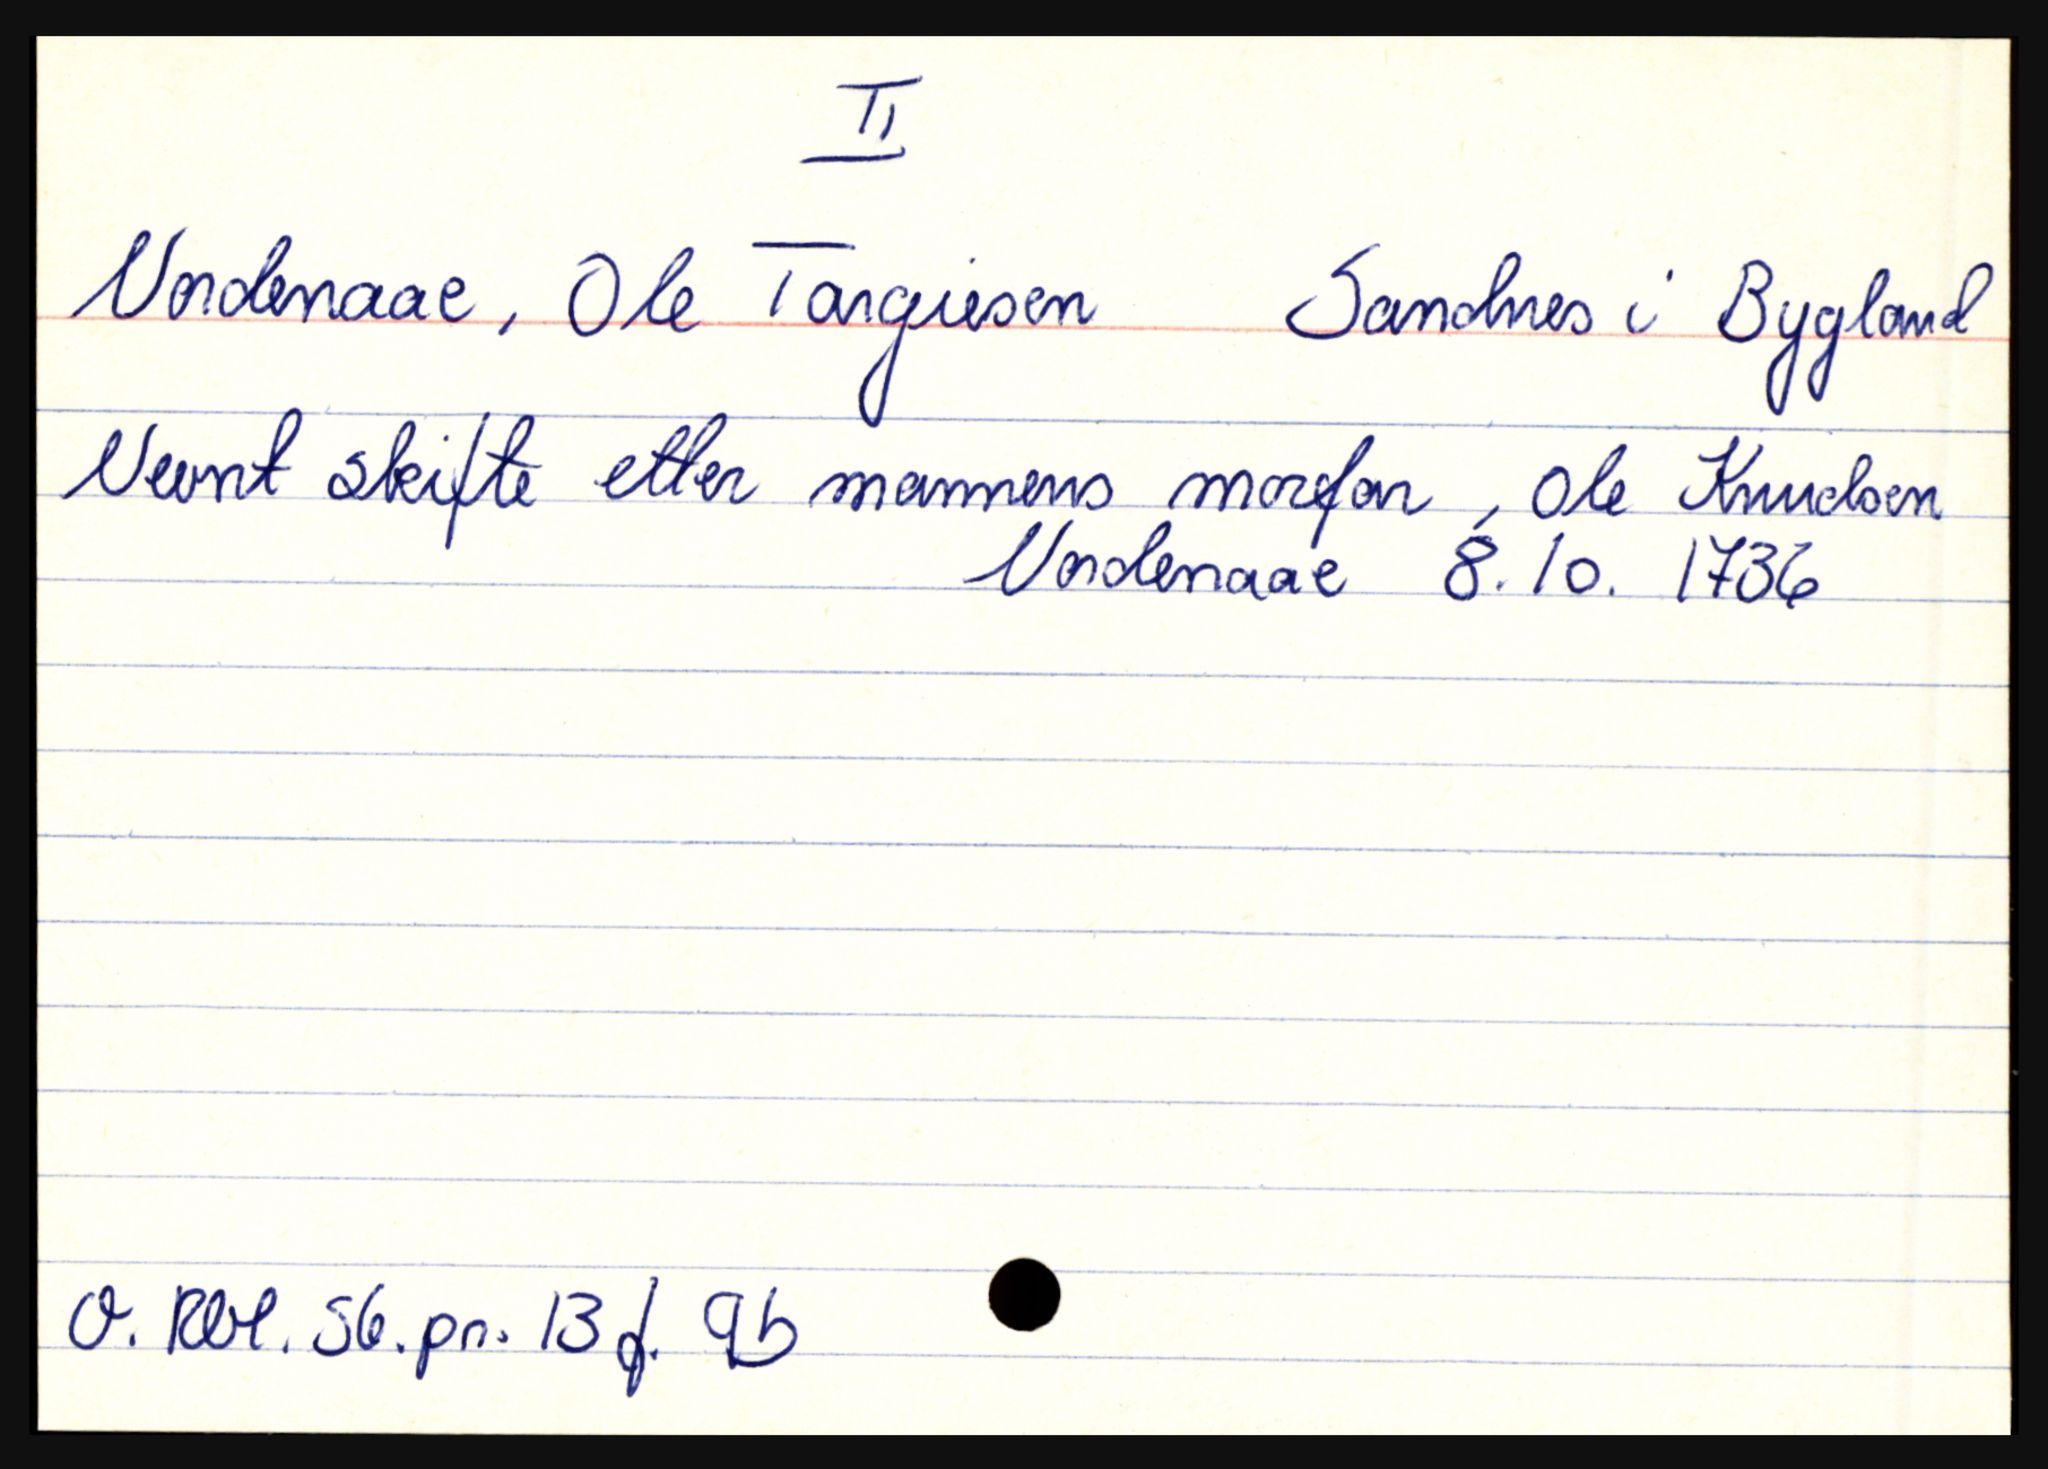 II
Nordenaae, Ole Targiesen Sandnes i Bygland
Nevnt skifte etter mannens morfar, Ole Knudsen
Nordenaae 8.10. 1736
O. Rbl. S6. pr. 13 f. 9b